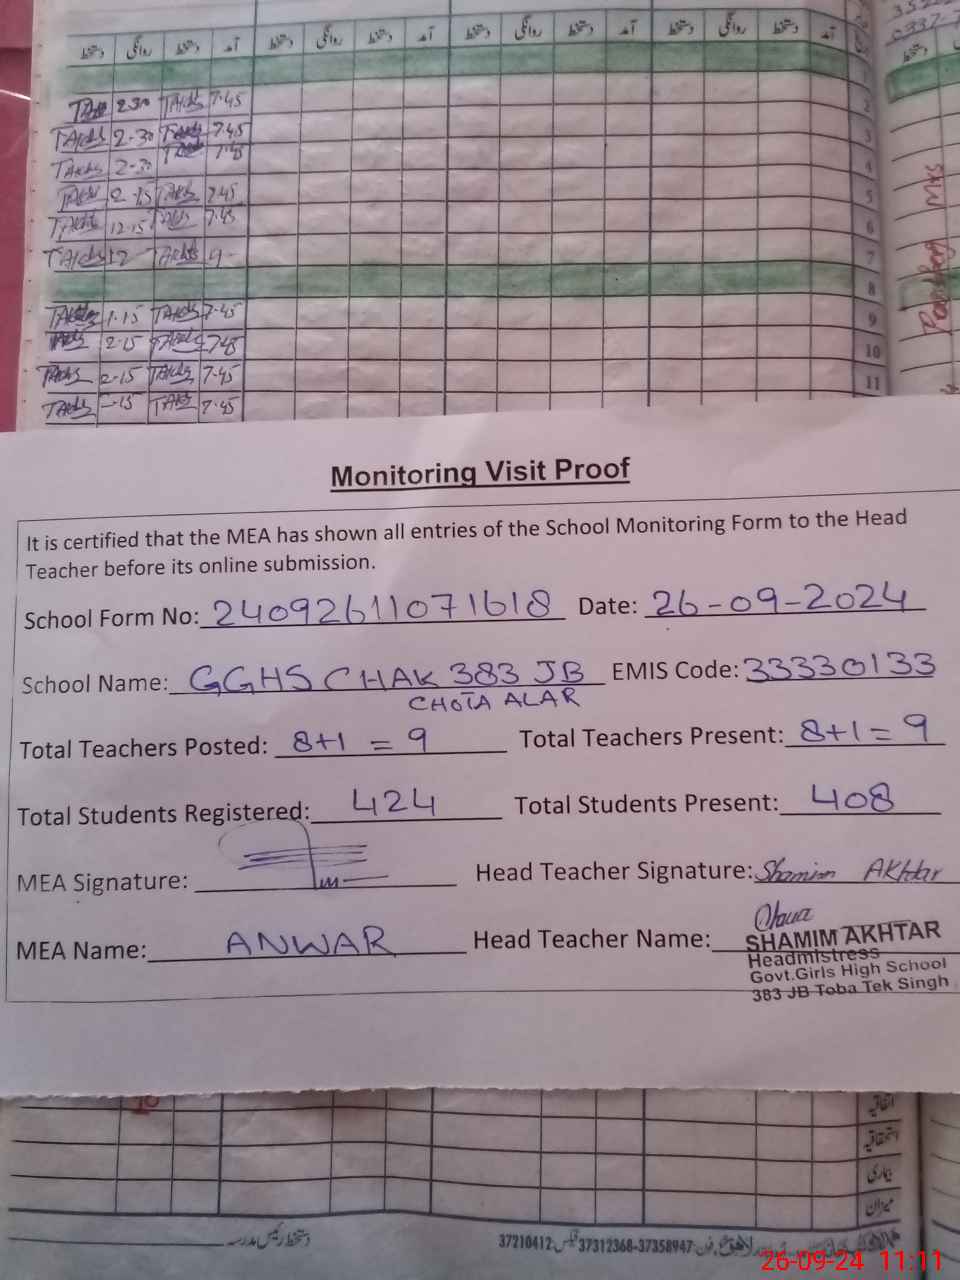 آمد دستخط روانگی دستخط آمد دستخط روانگی دستخط آمد دستخط روانگی دستخط آمد دستخط روانگی دستخط
1
7.45 2.30 2
7.45 TAkhs 2-30 TAkhs 3
7.45 2-30 TAkhs 4
7.45 TAkhs 2-15 TAkhs 5
7.45 12.15 TAkhs 6
9- TAkhts 12 TAkhs 7
8
7.45 TAkhs 1.15 9
7.45 2-15 10
7.45 TAkhs 2-15 TAkhs 11
7.45 TAkhs -15 TAkhs
Monitoring Visit Proof
It is certified that the MEA has shown all entries of the School Monitoring Form to the Head
Teacher before its online submission.
School Form No: 24092611071618 Date: 26-09-2024
School Name: GGHS CHAK 383 JB EMIS Code: 33330133
CHOTA ALAR
Total Teachers Posted: 8+1 = 9 Total Teachers Present: 8+1 = 9
Total Students Registered: 424 Total Students Present: 408
MEA Signature: Head Teacher Signature: Shamim Akhtar
MEA Name: ANWAR Head Teacher Name:
SHAMIM AKHTAR
Headmistress
Govt.Girls High School
383 JB Toba Tek Singh
اتفاقیہ
استحقاقیہ
بیماری
میزان
دستخط رئیس مدرسہ
لاہور فون: 37358947-37312368 فیکس: 37210412
26-09-24 11:11